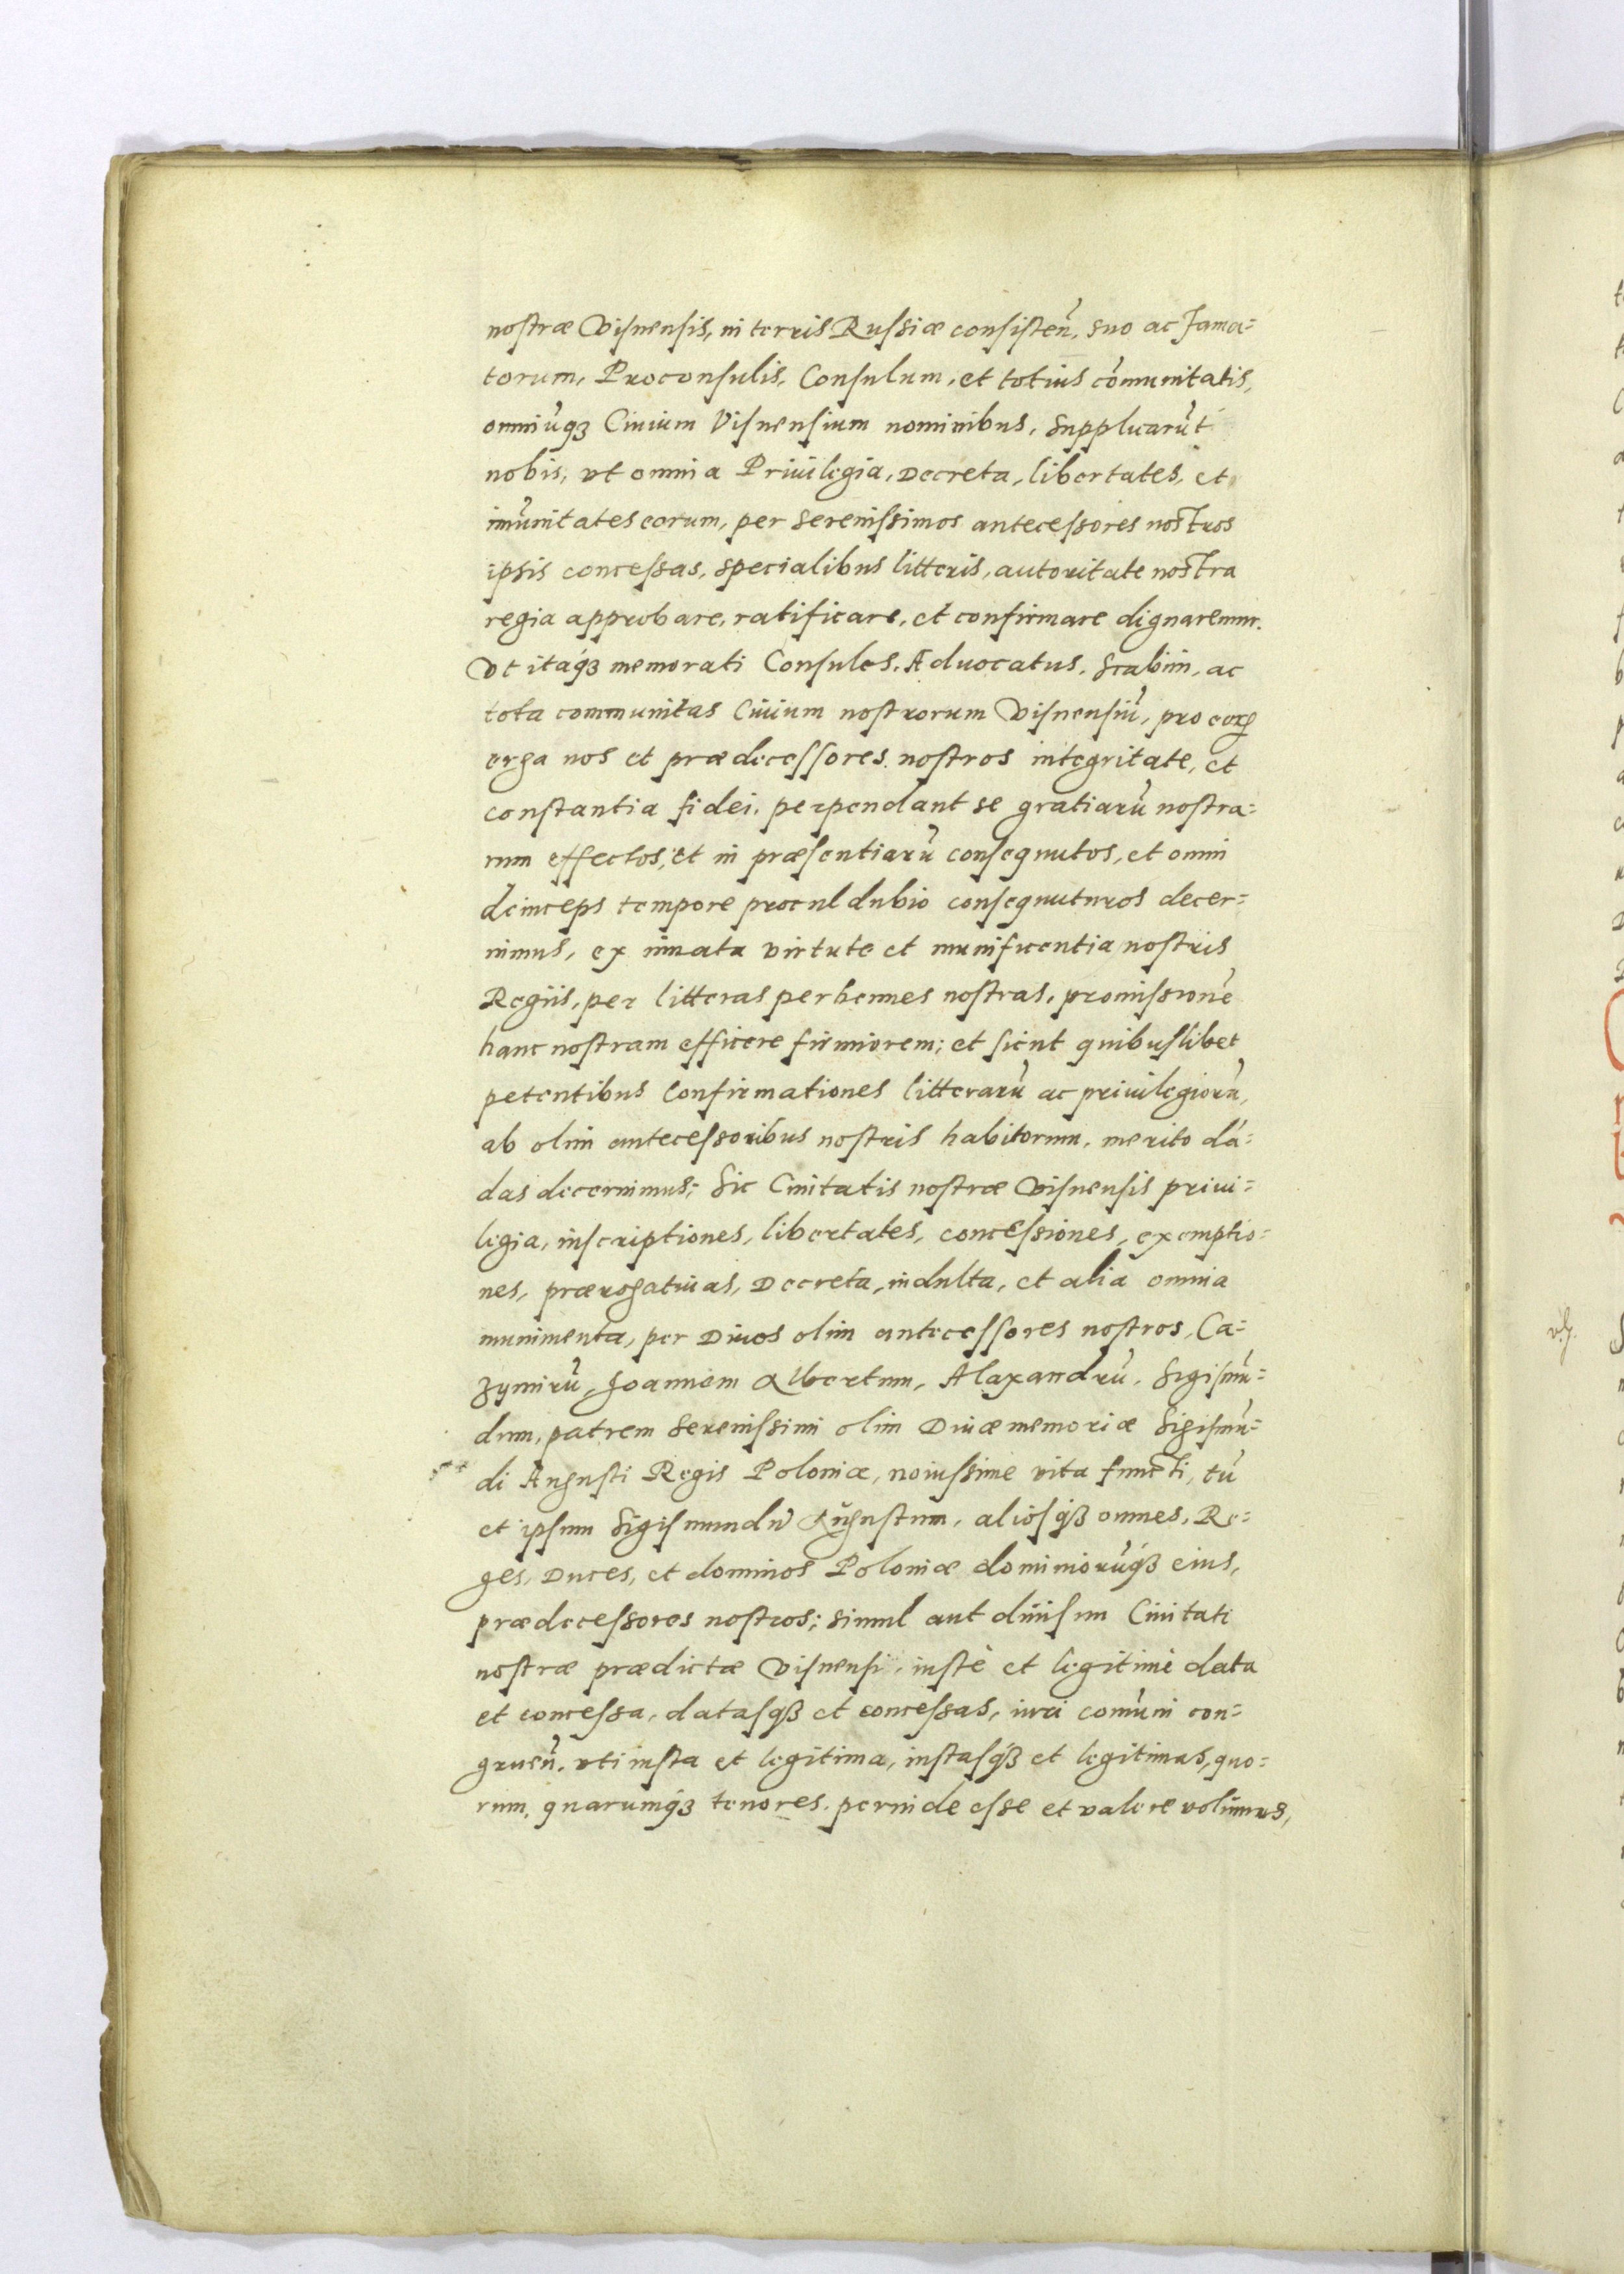 nostræ Visnensis, in terris Russiæ consisteñ, suo ac fama=
torum, Proconsulis, Consulum, et totius cõmunitatis,
omniũqꝫ Ciuium Visnensium nominibus, supplicarũt
nobis, vt omnia Priuilegia, Decreta, libertates, et
imũnitates eorum, per serenissimos antecessores nostros
ipsis concessas, specialibus litteris, autoritate nostra
regia approbare, ratificare, et confirmare dignaremur.
Vt itaqꝫ memorati Consules, Aduocatus, Scabini, ac
tota communitas Ciuium nostrorum Visnensiũ, pro eorꝝ
erga nos et prædecessores nostros integritate, et
constantia fidei, perpendant se gratiarũ nostra=
rum effectos, et in præsentiarũ consequutos, et omni
deinceps tempore procul dubio consequuturos decer=
nimus, ex innata virtute et munificentia nostris
Regiis, per litteras perhennes nostras, promissionẽ
hanc nostram efficere firmiorem; et sicut quibuslibet
petentibus Confirmationes litterarũ ac priuilegiorũ,
ab olim antecessoribus nostris habitorum, merito dã=
das decernimus; Sic Ciuitatis nostræ Visnensis priui=
legia, inscriptiones, libertates, concessiones, exemptio=
nes, prærogatiuas, Decreta, indulta, et alia omnia
munimenta, per Diuos olim antecessores nostros, Ca=
zymirũ, Joannem Albertum, Alaxandrũ, Sigismũ=
dum, patrem Serenissimi olim Diuæ memoriæ Sigismũ=
di Augusti Regis Poloniæ, noiussime vita functi, tũ
et ipsum Sigismundũ Augustum, aliosqꝫ omnes, Re=
ges, Duces, et dominos Poloniæ dominiorũqꝫ eius,
prædecessores nostros; simul aut diuisim Ciuitati
nostræ prædictæ Visnensi, iustè et legitimè data
et concessa, datasqꝫ et concessas, iuri comũni con=
grueñ, vti iusta et legitima, iustasqꝫ et legitimas, quo=
rum, quarumqꝫ tenores, perinde esse et valere volumus,